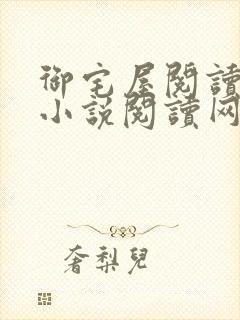 御宅屋閱讀
小説閱讀网
奢梨兒